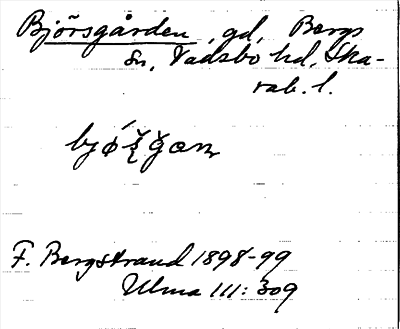 Björsgården, gd, Bergs
sn, Vadsbo hd, Ska-
rab. l.
F. Bergstrand 1898-99
Ulma 111: 309